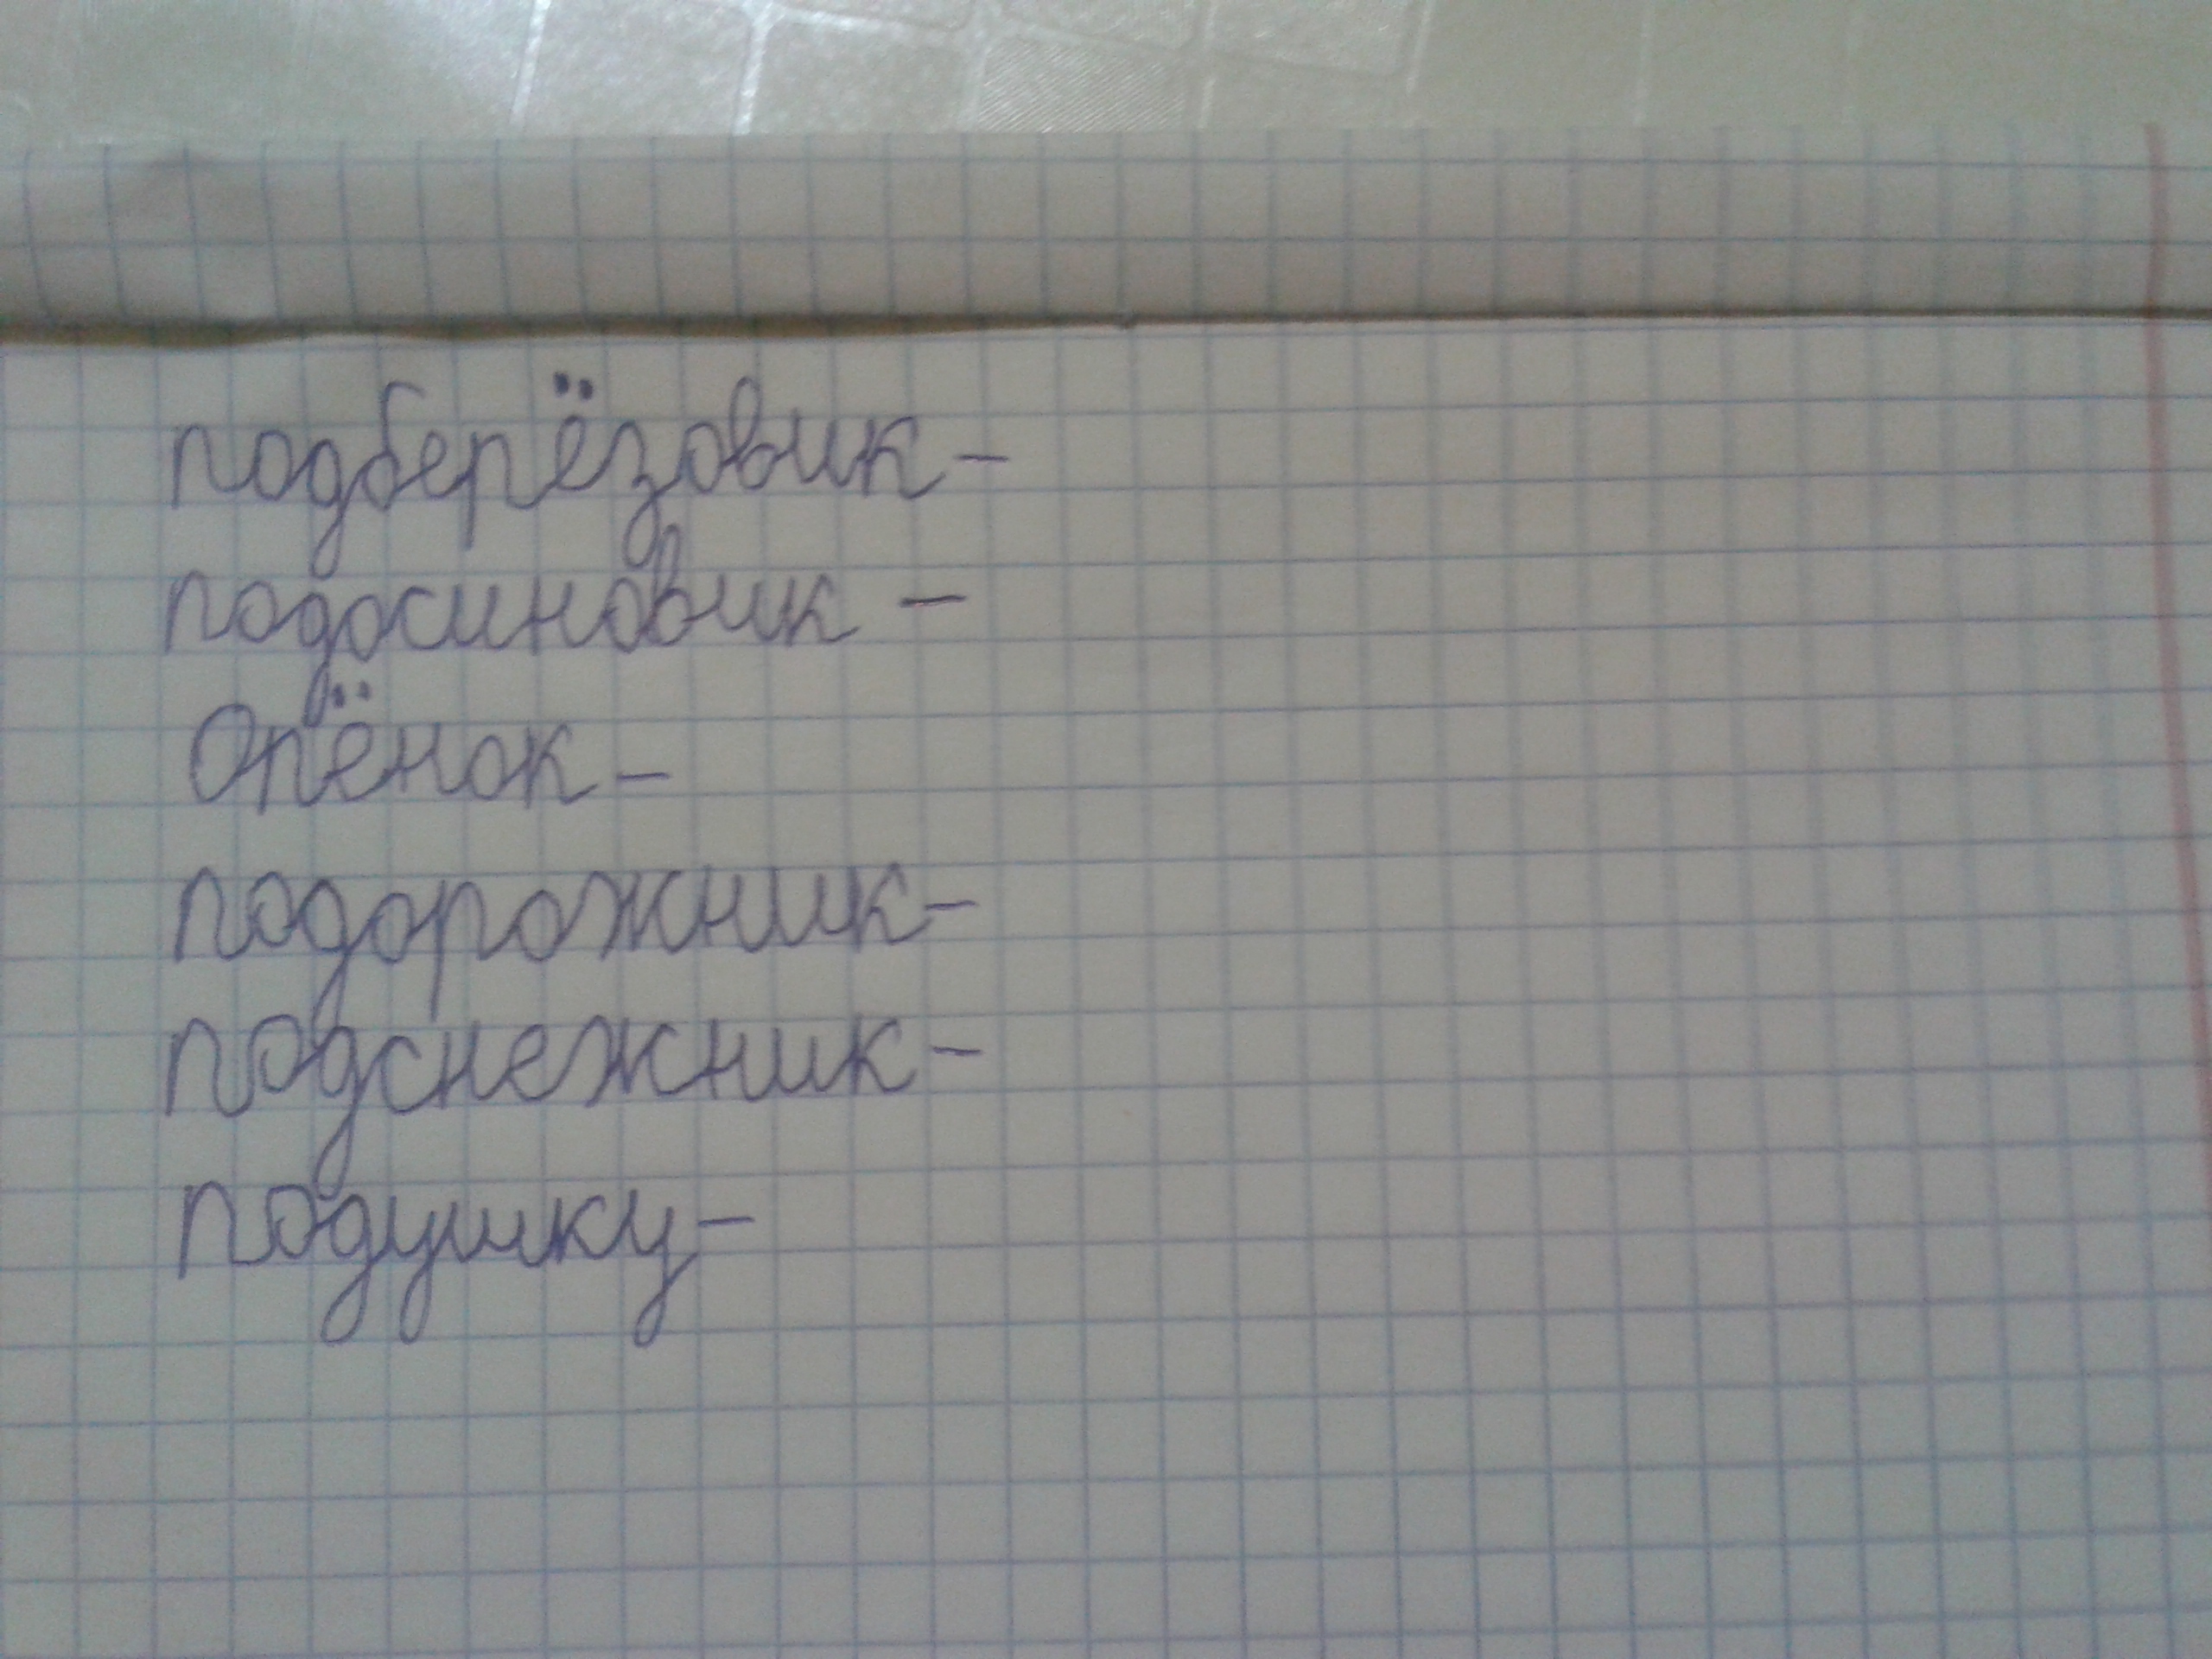 подберёзовик-
подосиновик -
Опёнок-
подорожник-
подснежник-
подушку-